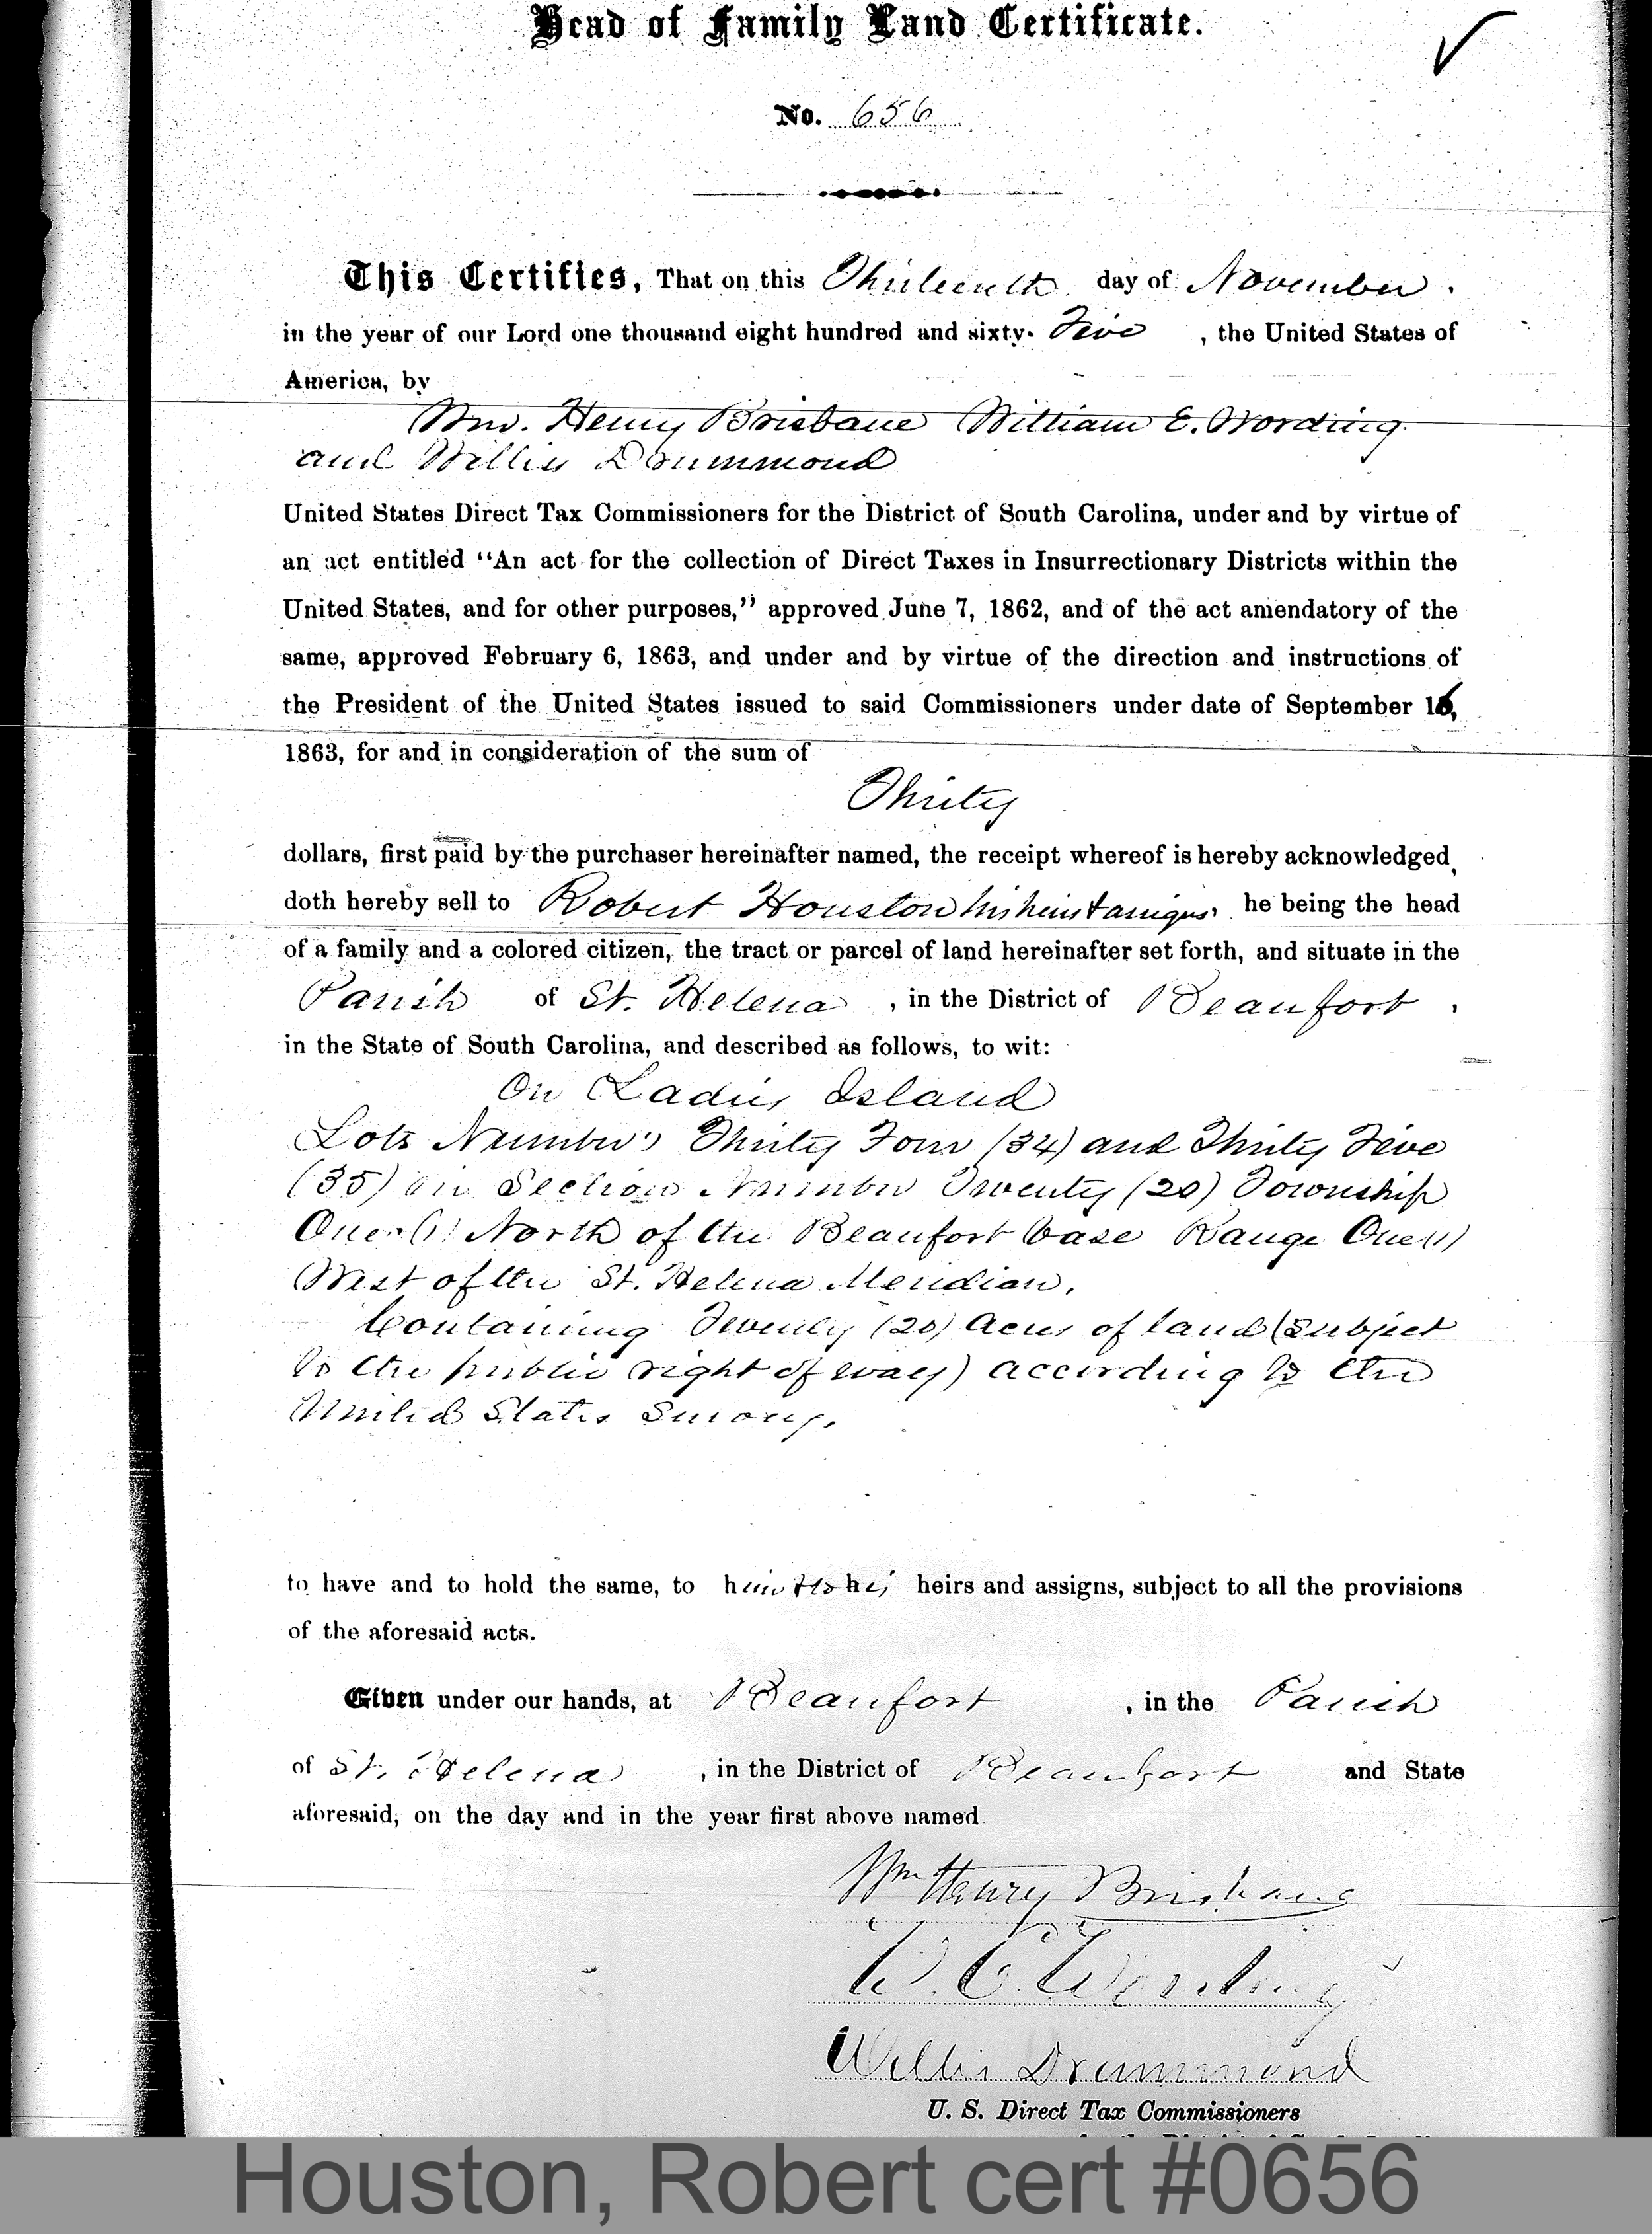 Head of Family Land Certificate.
No. 656
This Certifies, That on this Thirteenth day of November.
in the year of our Lord one thousand eight hundred and sixty-Five, the United States of
America, by
Wm. Henry Brisbane William E. Wording
and Willis Drummond
United States Direct Tax Commissioners for the District of South Carolina, under and by virtue of
an act entitled "An act for the collection of Direct Taxes in Insurrectionary Districts within the
United States, and for other purposes," approved June 7, 1862, and of the act amendatory of the
same, approved February 6, 1863, and under and by virtue of the direction and instructions of
the President of the United States issued to said Commissioners under date of September 16,
1863, for and in consideration of the sum of
Thirty
dollars, first paid by the purchaser hereinafter named, the receipt whereof is hereby acknowledged,
doth hereby sell to Robert Houston his heirs & assigns, he being the head
of a family and a colored citizen, the tract or parcel of land hereinafter set forth, and situate in the
Parish of St. Helena, in the District of Beaufort,
in the State of South Carolina, and described as follows, to wit:
On Ladies Island
Lots Number's Thirty Four (34) and Thirty Five
(35) in Section Number Twenty (20) Township
One (1) North of the Beaufort base Range One (1)
West of the St. Helena Meridian.
Containing Twenty (20) Acres of land (Subject
to the public right of way) according to the
United States Survey.
to have and to hold the same, to him & to his heirs and assigns, subject to all the provisions
of the aforesaid acts.
Given under our hands, at Beaufort, in the Parish
of St. Helena, in the District of Beaufort and State
aforesaid, on the day and in the year first above named.
Wm Henry Brisbane
W. E. Wording
Willis Drummond
U. S. Direct Tax Commissioners
Houston, Robert cert #0656